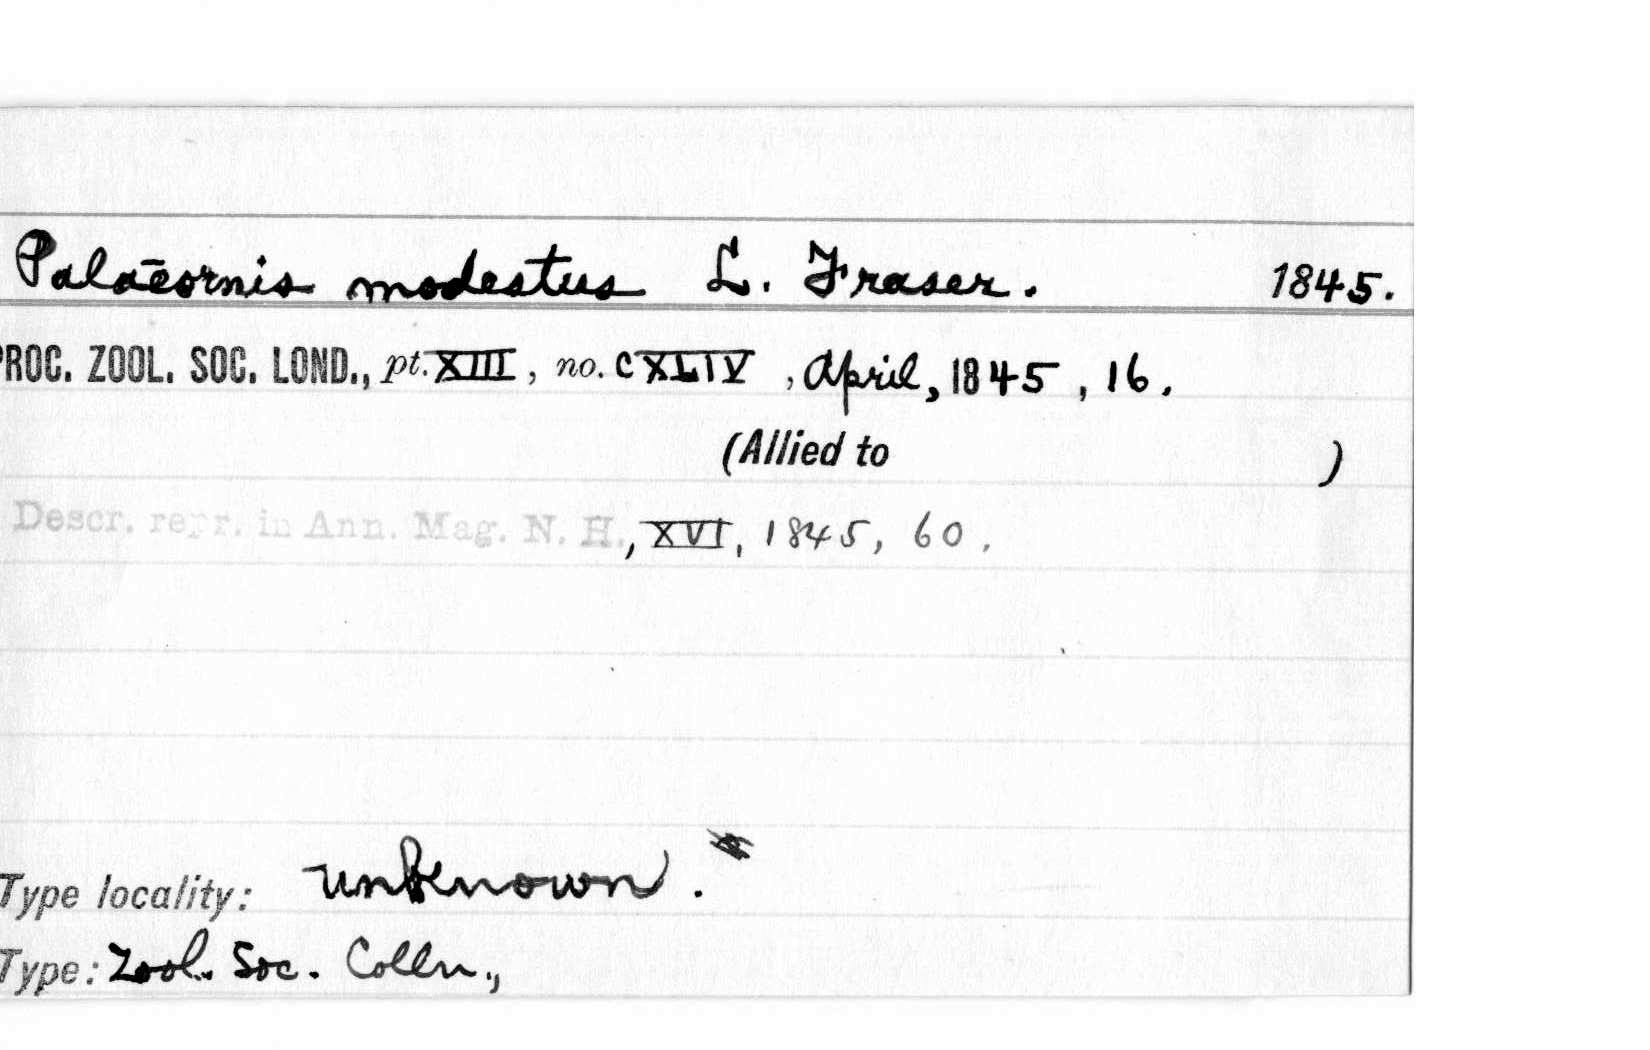 Palaeornis modestus L. Fraser. 1845.
PROC. ZOOL. SOC. LOND., pt. XIII, no. CXLIV, April, 1845, 16.
(Allied to )
Descr. repr. in Ann. Mag. N. H., XVI, 1845, 60.
Type locality: unknown.
Type: Zool. Soc. Colln.,